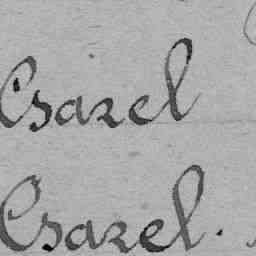 Csazel
Csazel.